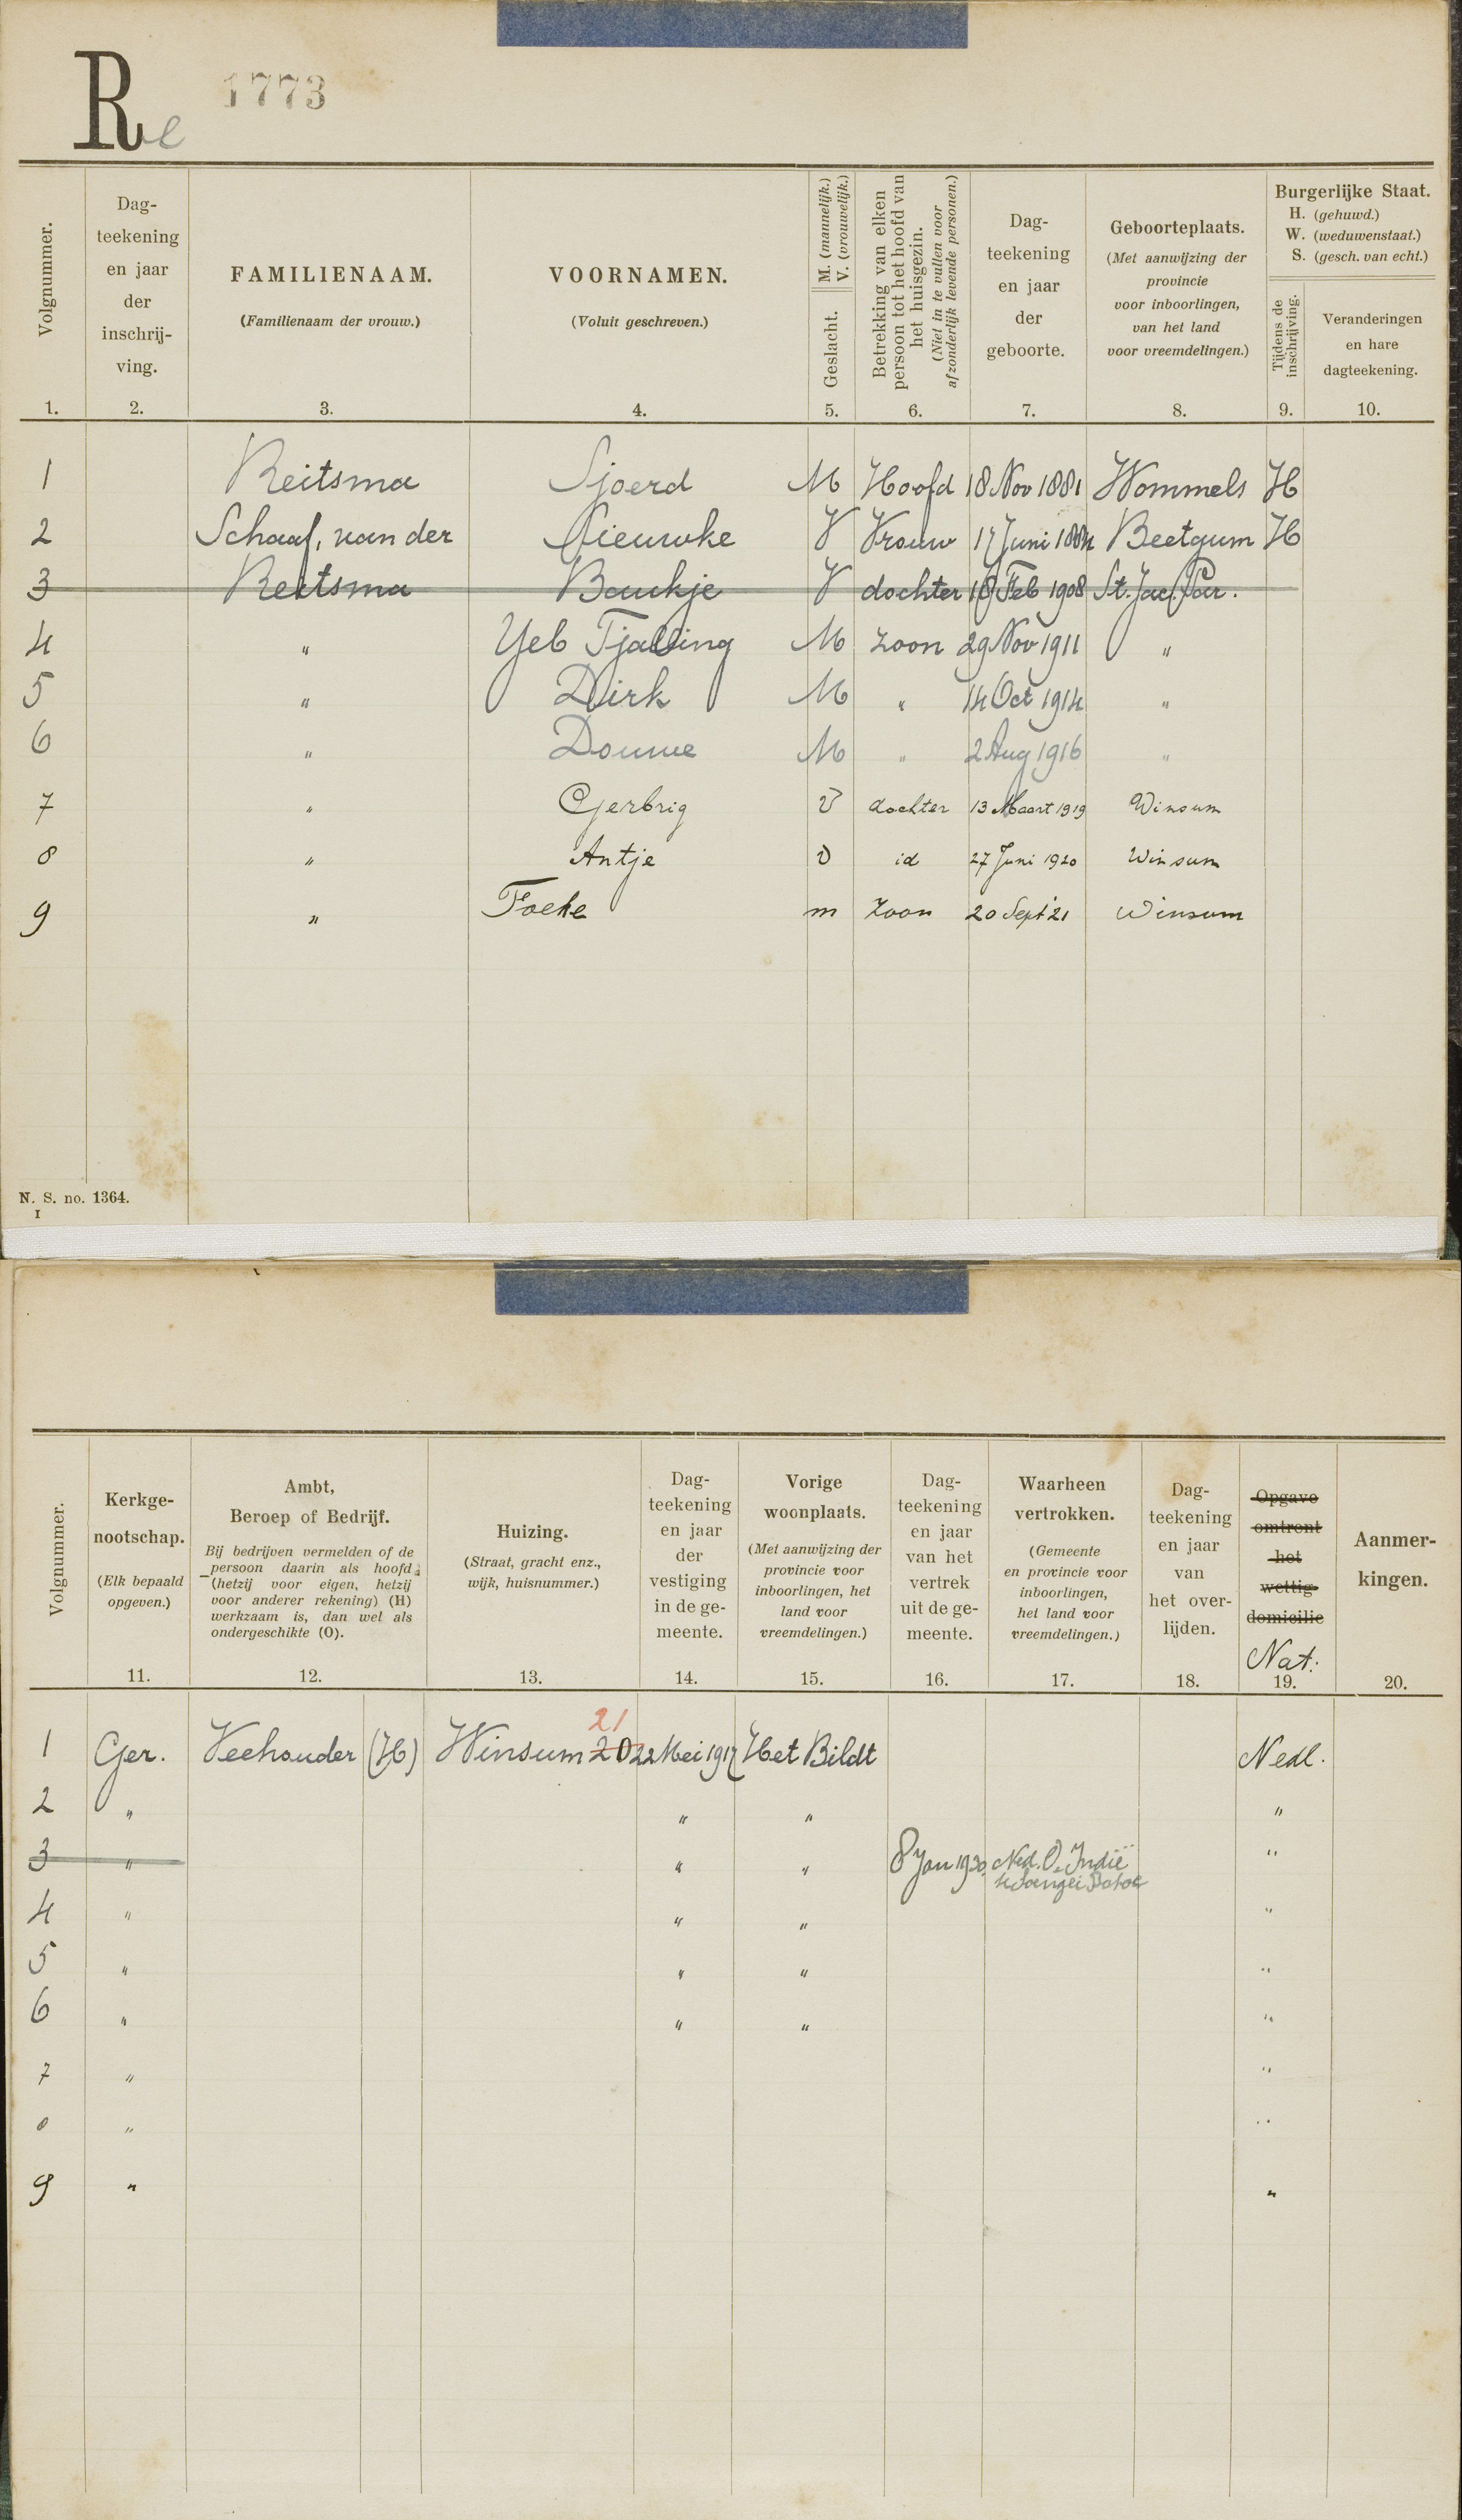 Re 1773
Volgnummer.
1.
Dag-
teekening
en jaar
der
inschrij-
ving.
2.
FAMILIENAAM.
(Familienaam der vrouw.)
3.
VOORNAMEN.
(Voluit geschreven.)
4.
Geslacht.
M. (mannelijk.)
V. (vrouwelijk.)
5.
Betrekking van elken
persoon tot het hoofd van
het huisgezin.
(Niet in te vullen voor
afzonderlijk levende personen.)
6.
Dag-
teekening
en jaar
der
geboorte.
7.
Geboorteplaats.
(Met aanwijzing der
provincie
voor inboorlingen,
van het land
voor vreemdelingen.)
8.
Burgerlijke Staat.
H. (gehuwd.)
W. (weduwenstaat.)
S. (gesch. van echt.)
Tijdens de
inschrijving.
9.
Veranderingen
en hare
dagteekening.
10.
1 Reitsma Sjoerd M Hoofd 18 Nov 1881 Wommels H
2 Schaaf, van der Nieuwke V Vrouw 17 Juni 1884 Beetgum H
3 Reitsma Baukje V dochter 18 Feb 1908 St. Jac. Par.
4 " Yeb Tjalling M zoon 29 Nov 1911 "
5 " Dirk M " 14 Oct 1914 "
6 " Douwe M " 2 Aug 1916 "
7 " Gerbrig V dochter 13 Maart 1919 Winsum
8 " Antje V id 27 Juni 1920 Winsum
9 " Foeke m zoon 20 Sept '21 Winsum
N. S. no. 1364.
I
Volgnummer.
Kerkge-
nootschap.
(Elk bepaald
opgeven.)
11.
Ambt,
Beroep of Bedrijf.
Bij bedrijven vermelden of de
persoon daarin als hoofd
(hetzij voor eigen, hetzij
voor anderer rekening) (H)
werkzaam is, dan wel als
ondergeschikte (O).
12.
Huizing.
(Straat, gracht enz.,
wijk, huisnummer.)
13.
Dag-
teekening
en jaar
der
vestiging
in de ge-
meente.
14.
Vorige
woonplaats.
(Met aanwijzing der
provincie voor
inboorlingen, het
land voor
vreemdelingen.)
15.
Dag-
teekening
en jaar
van het
vertrek
uit de ge-
meente.
16.
Waarheen
vertrokken.
(Gemeente
en provincie voor
inboorlingen,
het land voor
vreemdelingen.)
17.
Dag-
teekening
en jaar
van
het over-
lijden.
18.
Opgave
omtrent
het
wettig
domicilie
Nat:
19.
Aanmer-
kingen.
20.
21
1 Ger. Veehouder (H) Winsum 20 22 Mei 1917 Het Bildt Nedl.
2 " " " "
3 " " " 8 Jan 1930 Ned. O. Indië "
4 " " " "
5 " " " "
6 " " " "
7 " "
8 " "
9 " "